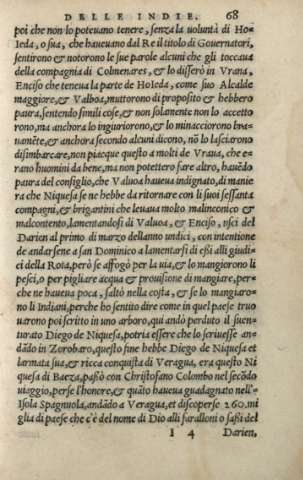 DELLE INDIE. 68
poi che non lo poteuano tenere, senza la voluntà di Ho-
ieda, o sua, che haueuano dal Re il titolo di Gouernatori,
sentirono & notorono le sue parole alcuni che gli toccaua
della compagnia di Colmenares, & lo dissero in Vraua,
Enciso che teneua la parte de Hoieda, come suo Alcalde
maggiore, & Valboa, muttorono di proposito & hebbero
paura, sentendo simili cose, & non solamente non lo accetto
rono, ma anchora lo ingiuriorono, & lo minacciorono bra-
uamẽte, & anchora secondo alcuni dicono, nõ lo lasciorono
disimbarcare, non piacque questo a molti de Vraua, che e-
rano huomini da bene, ma non potettero fare altro, hauẽdo
paura del consiglio, che Valuoa haueua indignato, di manie
ra che Niquesa se ne hebbe da ritornare con li suoi sessanta
compagni, & brigantini che leuaua molto malinconico &
malcontento, lamentandosi di Valuoa, & Enciso, vsci del
Darien al primo di marzo dellanno undici, con intentione
de andarsene a san Dominico a lamentarsi di essi alli giudi-
ci della Rota, però se affogò per la uia, & lo mangiorono li
pesci, o per pigliare acqua & prouisione di mangiare, per-
che ne haueua poca, saltò nella costa, & se lo mangiaro-
no li Indiani, perche ho sentito dire come in quel paese truo
uarono poi scritto in uno arboro, qui andò perduto il suen-
turato Diego de Niquesa, potria essere che lo scriuesse an-
dãdo in Zorobaro, questo fine hebbe Diego de Niquesa et
larmata sua, & ricca conquista di Veragua, era questo Ni
quesa di Baeza, passò con Christofano Colombo nel secõdo
uiaggio, perse l'honore, & quãto haueua guadagnato nell'-
Isola Spagnuola, andãdo a Veragua, et discoperse 260. mi
glia di paese che c'è del nome di Dio alli faralloni o sassi del
I 4 Darien,